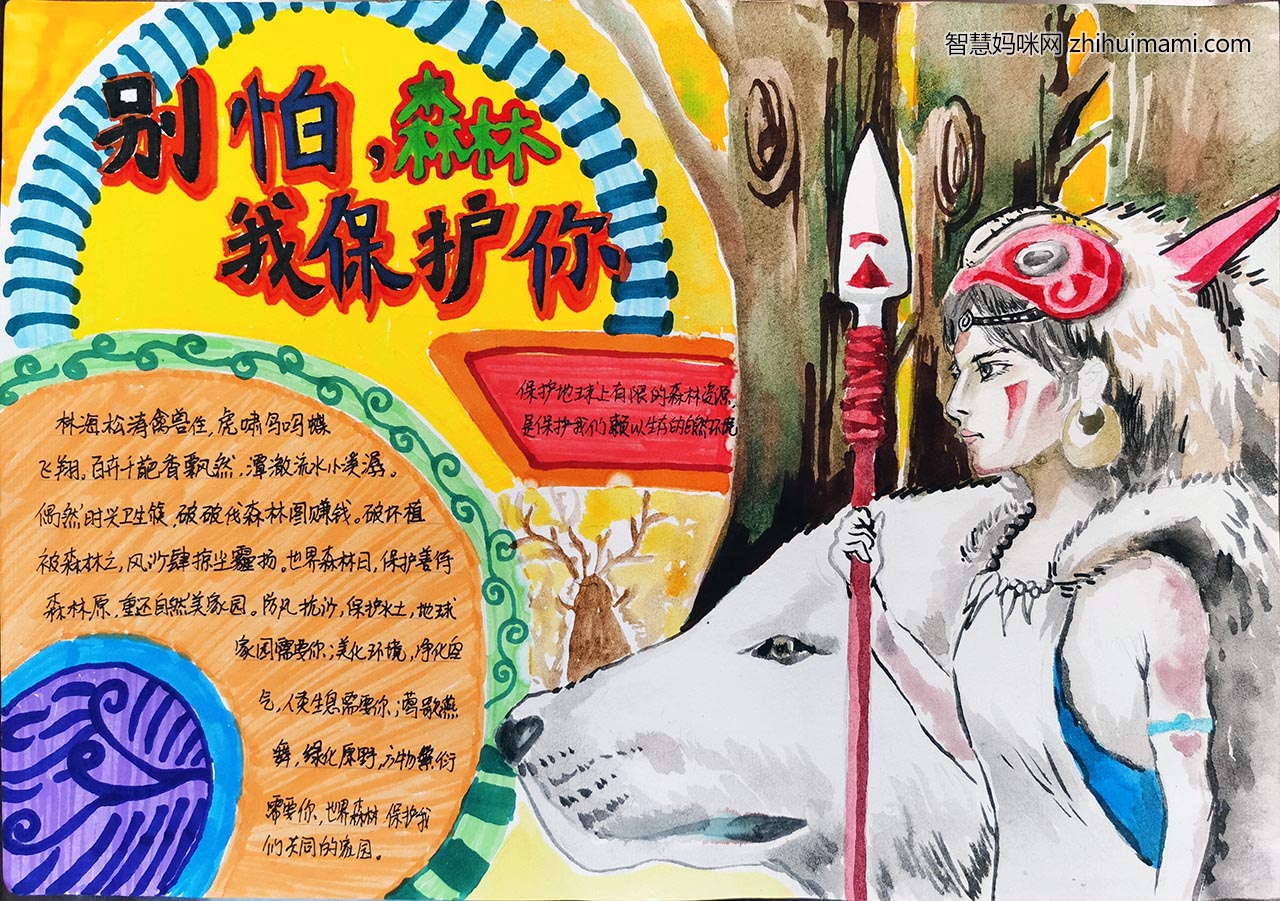 智慧妈咪网 zhihuimami.com
别怕,森林
我保护你
保护地球上有限的森林资源
是保护我们赖以生存的自然环境
林海松涛禽兽住,虎啸鸟吗蝶
飞翔。百卉千葩香飘然,潭澈流水小溪潺。
偶然时兴卫生筷,破破伐森林图赚钱。破坏植
被森林亡,风沙肆掠尘霾扬。世界森林日,保护善待
森林原,重还自然美家园。防风抗沙,保护水土,地球
家园需要你;美化环境,净化空
气,人类生息需要你;莺歌燕
舞,绿化原野,万物繁衍
需要你,世界森林 保护我
们共同的家园。